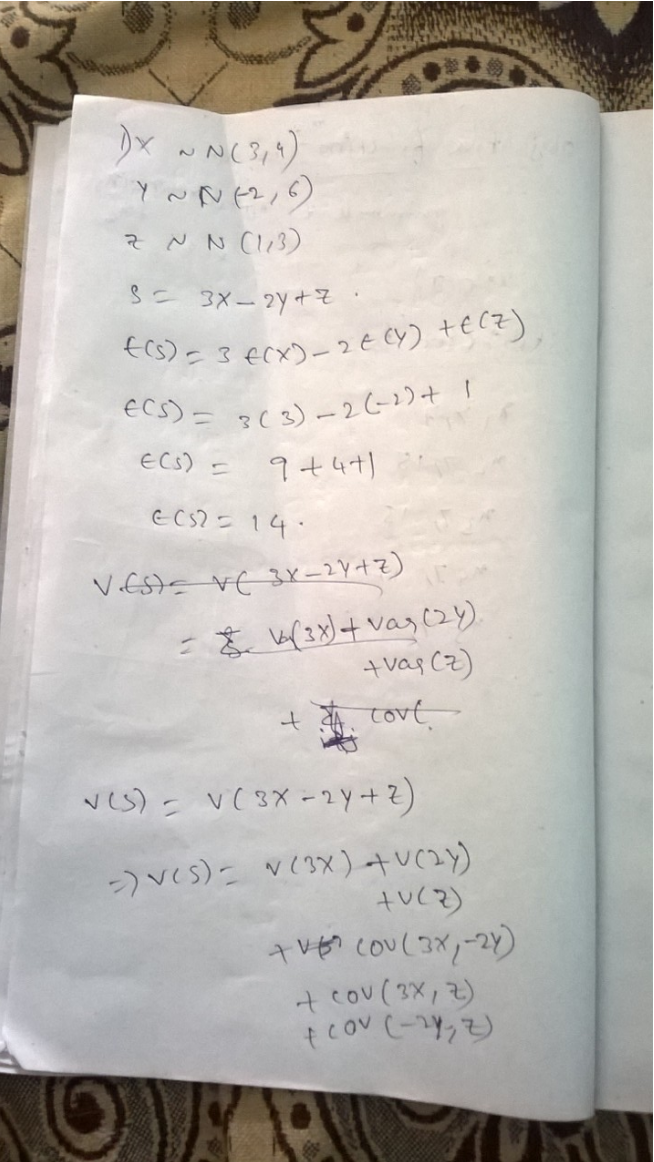 1) X ~ N(3,4)
Y ~ N(-2,6)
Z ~ N(1,3)
S = 3X-2Y+Z.
E(S) = 3E(X)-2E(Y)+E(Z)
E(S) = 3(3)-2(-2)+1
E(S) = 9+4+1
E(S) = 14.
V(S) = V(3X-2Y+Z)
= Var(3X)+Var(2Y)
+Var(Z)
+ Cov(
V(S) = V(3X-2Y+Z)
=> V(S) = V(3X)+V(2Y)
+V(Z)
+ COV(3X,-2Y)
+ COV(3X,Z)
+ COV(-2Y,Z)